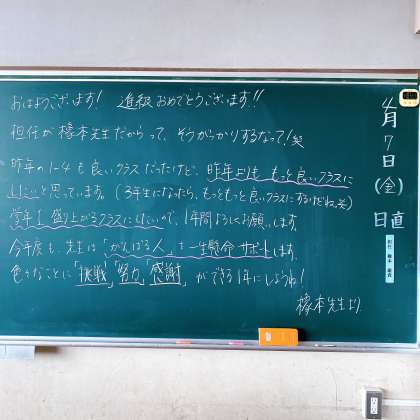 おはようございます! 進級おめでとうございます!!
担任が橡本先生だからって、そうがっかりするなって!笑
昨年の1-4も良いクラスだったけど、昨年よりも もっと良いクラスに
したいと思っています。(3年生になったら、もっともっと良いクラスにするけどね。笑)
学年1 盛り上がるクラスにしたいので、1年間よろしくお願いします。
今年度も、先生は「がんばる人」を一生懸命サポートします。
色々なことに「挑戦」「努力」「感謝」ができる1年にしようね!
橡本先生より
4月7日(金)
日直